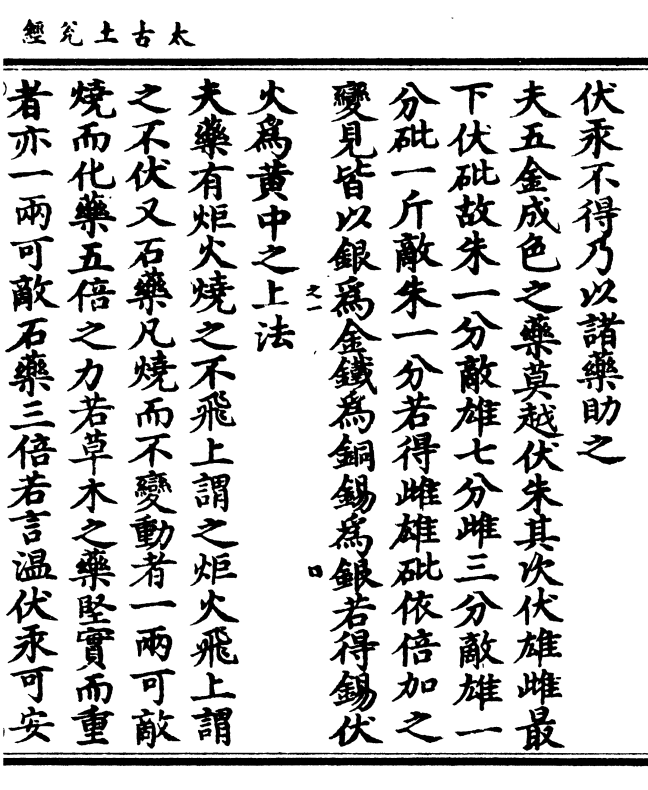 太古土兌經
伏汞不得乃以諸藥助之
夫五金成色之藥莫越伏朱其次伏雄雌最
下伏砒故朱一分敵雄七分雌三分敵雄一
分砒一斤敵朱一分若得雌雄砒依倍加之
變見皆以銀爲金鐵爲銅錫爲銀若得錫伏
之一
口
火爲黃中之上法
夫藥有炬火燒之不飛上謂之炬火飛上謂
之不伏又石藥凡燒而不變動者一兩可敵
燒而化藥五倍之力若草木之藥堅實而重
者亦一兩可敵石藥三倍若言温伏汞可安